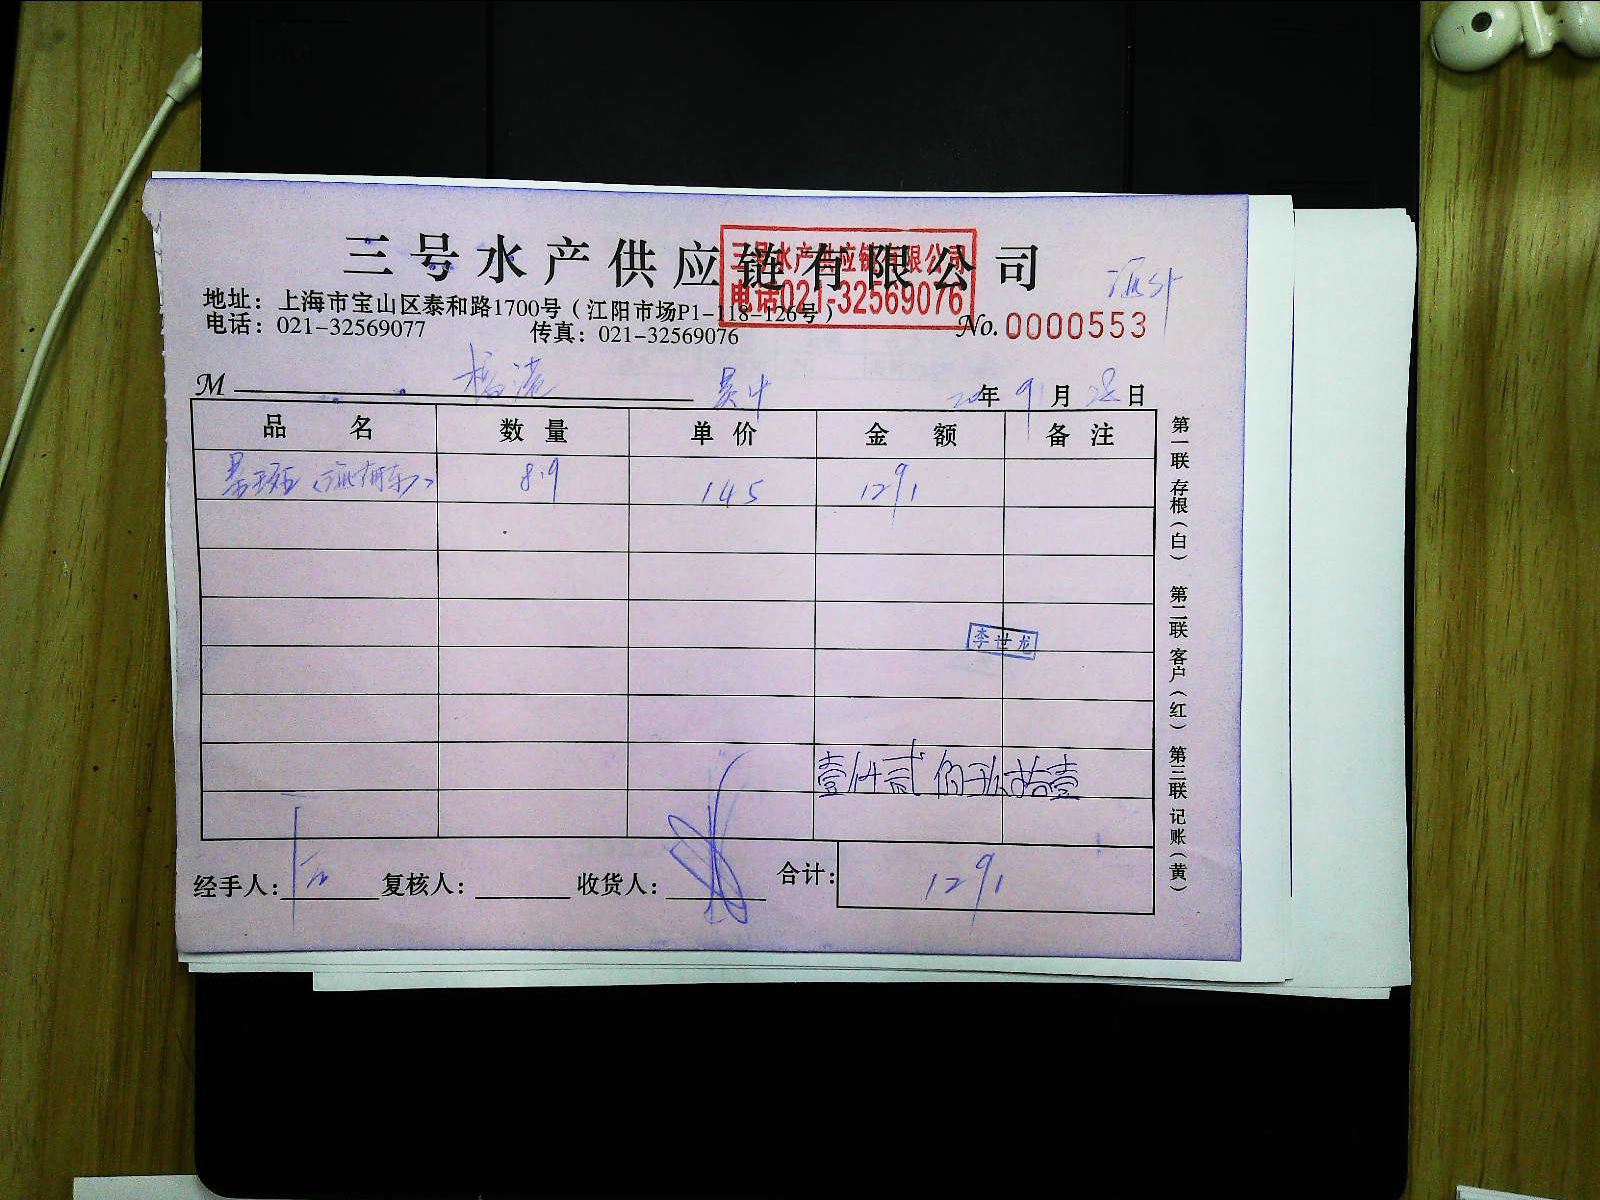 三号水产供应链有限公司
三号水产供应链有限公司
电话021-32569076
地址：上海市宝山区泰和路1700号（江阳市场P1-118-126号）
电话：021-32569077 传真：021-32569076
No. 0000553
M
年 9月 28日
品名 数量 单价 金额 备注
8.9 145 1291
李世龙
壹仟贰佰玖拾壹
经手人： 复核人： 收货人： 合计： 1291
第一联 存根（白） 第二联 客户（红） 第三联 记账（黄）